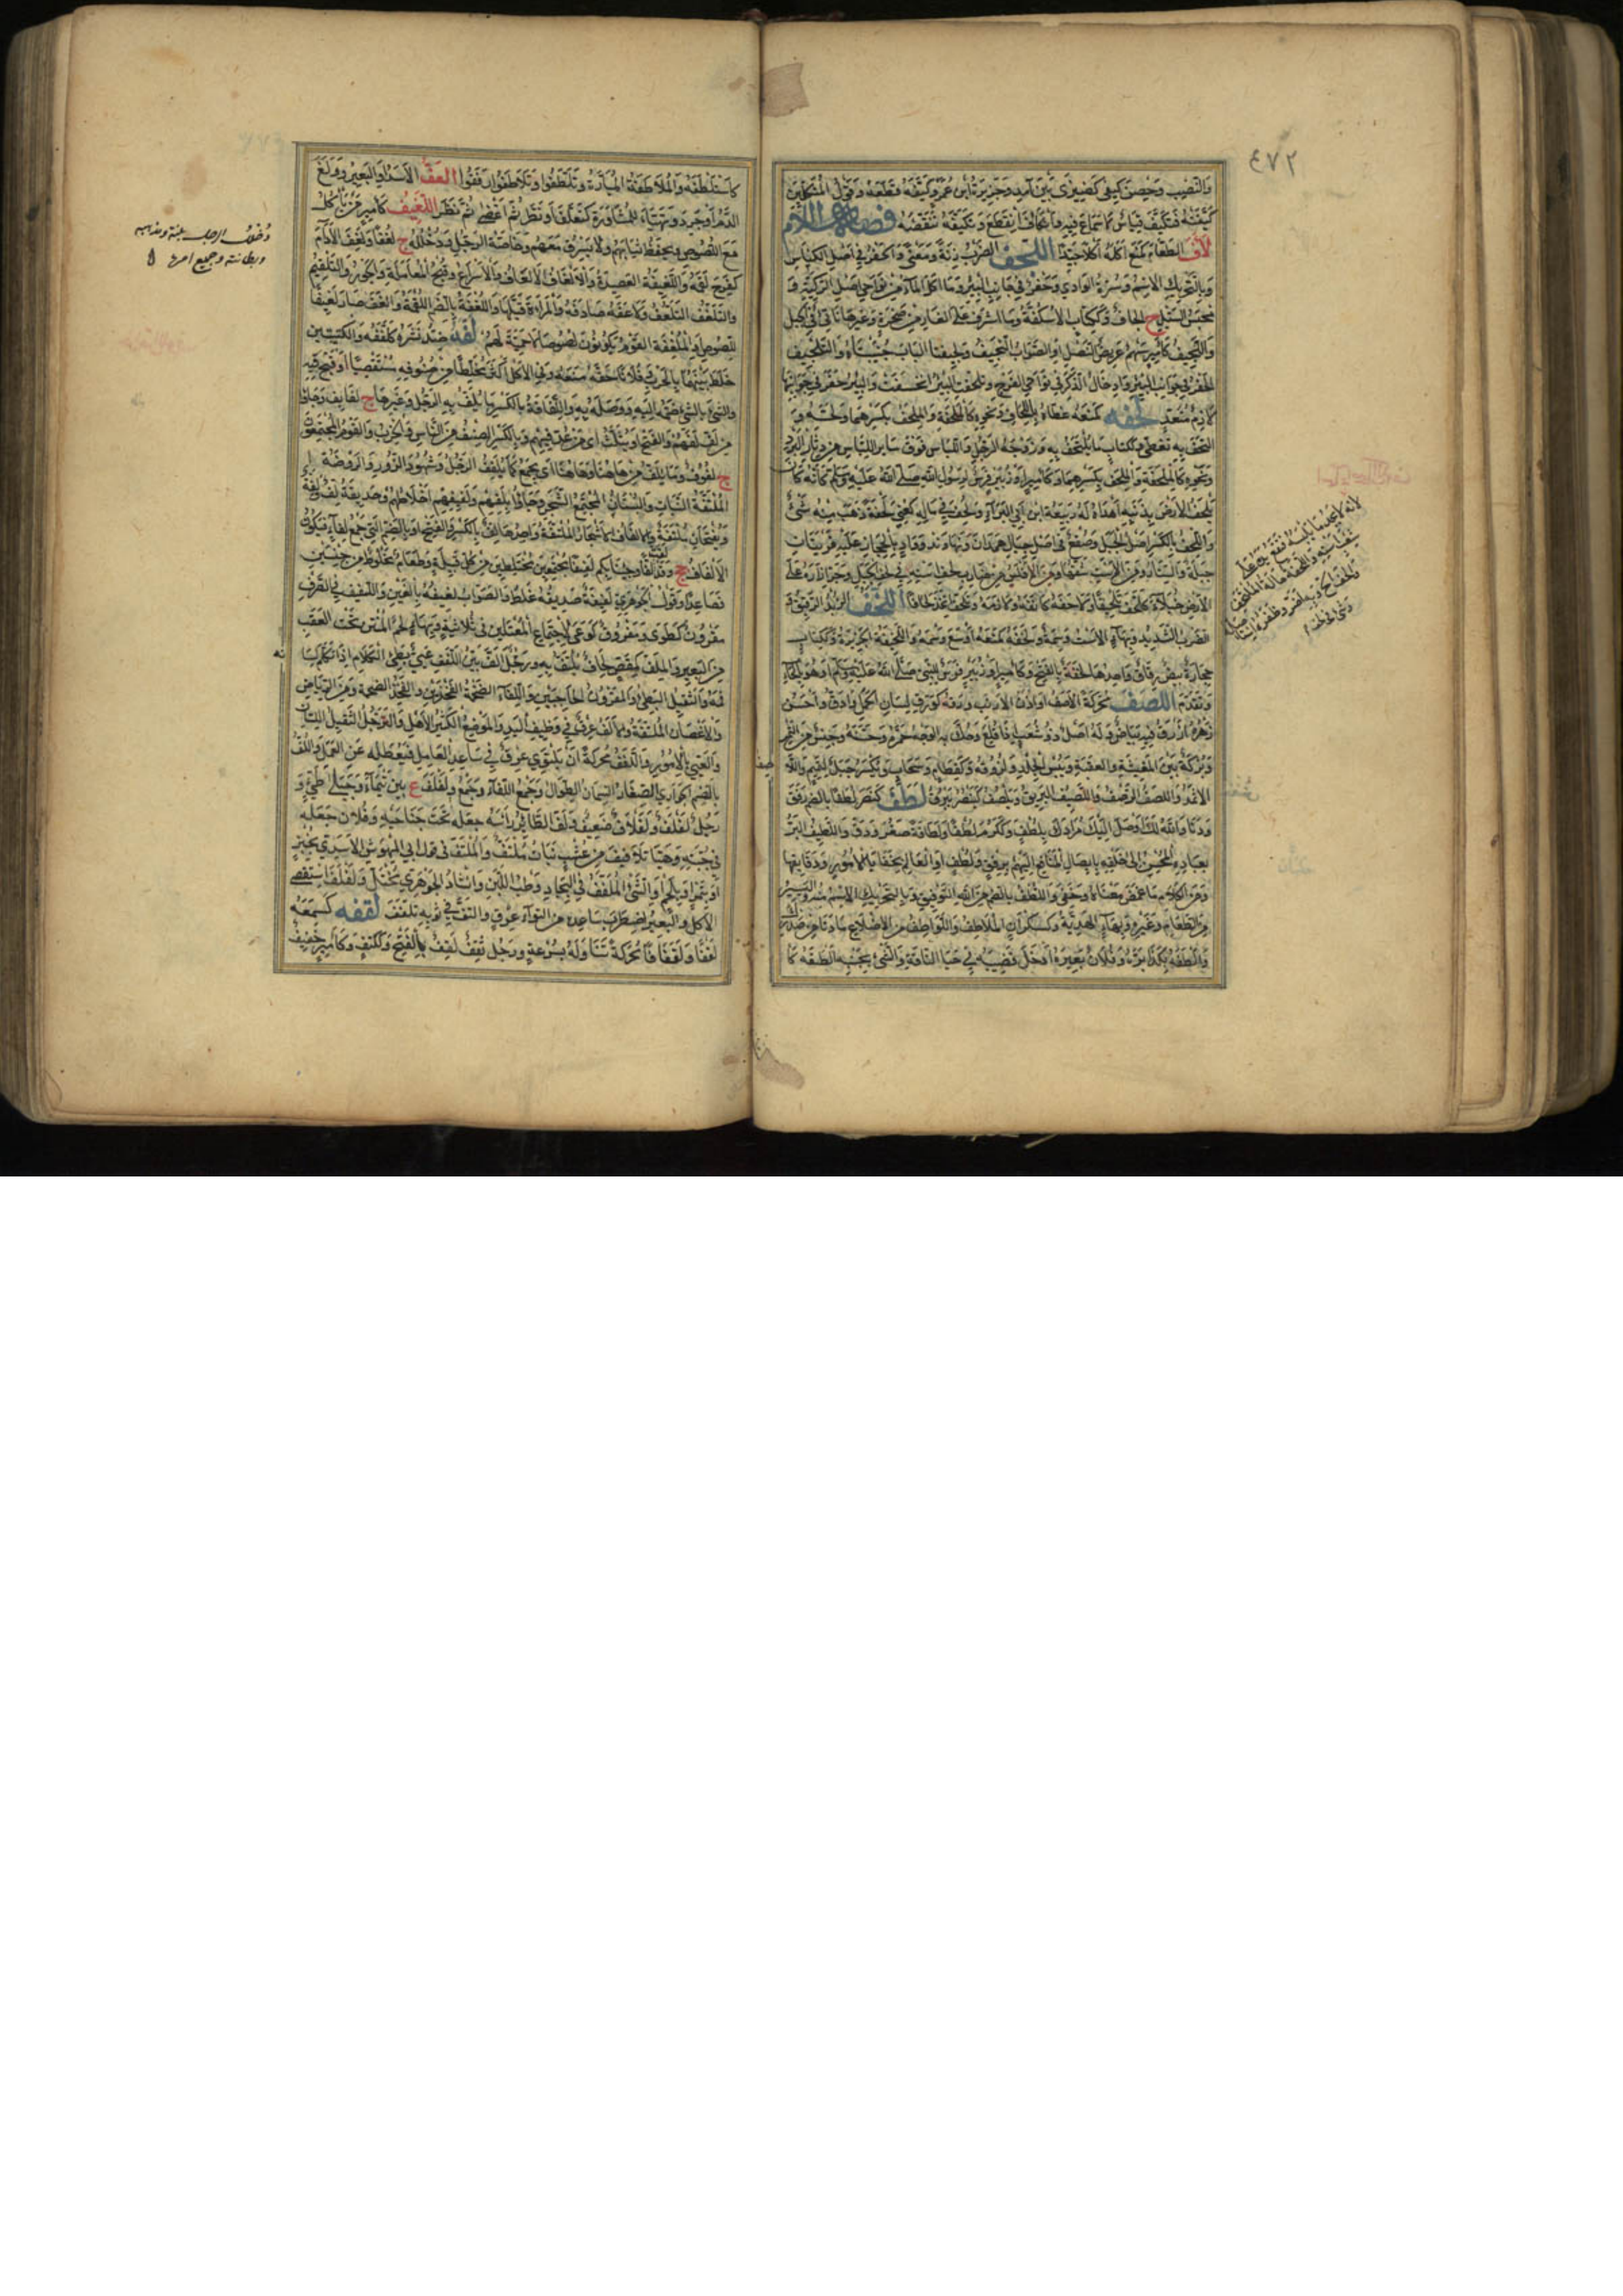 ٤٧٢
والنصيب وحصن كيفى كضيزى بين آمد وجزيرة ابن عمر وكيفه قطعه وقول المتكلمين
كيفته فتكيف قياس لا سماع فيه وانكاف انقطع وتكيفه تنقصه فصل اللام
لاف الطعام كمنع اكله اكلا جيدا اللجف الضرب زنة ومعنى والحفر في اصل الكناس
وبالتحريك الاسم وسرة الوادي وحفر في جانب البئر وما اكل الماء من نواحي اصل الركية و
محبس السيل ج الجاف وككتاب الاسكفة وما اشرف على الغار من صخرة وغيرها ناتئ في الجبل
واللجيف كامير سهم عريض النصل او الصواب النجيف ولجيفتا الباب جنبتاه والتلجيف
الحفر في جوانب البئر وادخال الذكر في نواحي الفرج وتلجفت البئر انخسفت والبئر حفر في جوانبها
لازم متعد لحفه كمنعه غطاه باللحاف ونحوه كالحفه
التحف به تغطى وككتاب ما يلتحف به وزوجة الرجل واللباس فوق سائر اللباس من دثار البرد
ونحوه كالملحفة والملحف بكسرهما وكامير او زبير فرس لرسول الله صلى الله عليه وسلم كانه كان
يلحف الارض بذنبه اهداه له ربيعة ابن ابي البراء ولحف في ماله كعني لحفة ذهب منه شيء
واللحف بالكسر اصل الجبل وصقع في اصل جبال همدان ونهاوند وواد بالحجاز عليه قريتان
جبلة والستار ومن الاست شقها
اللخف الزبد الرقيق و
الضرب الشديد وبهاء الاست وسمة ولخفه كمنعه اوسع وسمه واللخيفة الخزيرة وككتاب
حجارة بيض رقاق واحدها لخفة بالفتح وكامير او زبير فرس للنبي صلى الله عليه وسلم او هو بالحاء
وتقدم اللصف محركة الاصف او اذن الارنب ورقه كورق لسان الحمل وادق واحسن
زهره ازرق فيه بياض وله اصل ذو شعب اذا قلع وحك به الوجه حمره وحسنه وجنس من التمر
وبركة بين المغيثة والعقبة ويبس الجلد ولزوقه وكقطام وسحاب وتكسر جبل لتميم
الاثمد واللصف الرصف واللصيف البريق ويلصف كينصر يبرق لطف كنصر لطفا بالضم رفق
ودنا والله لك اوصل اليك مرادك بلطف وككرم لطفا ولطافة صغر ودق واللطيف البر
بعباده المحسن الى خلقه بايصال المنافع اليهم برفق ولطف او العالم بخفايا الامور ودقايقها
ومن الكلام ما غمض معناه وخفي واللطف بالضم من الله التوفيق وبالتحريك الاسم منه واليسير
من الطعام وغيره وبهاء الهدية وكسكران الملاطف واللواطف من الاضلاع ما دنا من صدرك
والطفه بكذا بره وفلان بعيره ادخل قضيبه في حيا الناقة والشيء بجنبه الصقه كا
كاستلطفه والملاطفة المبارة وتلطفوا وتلاطفوا رفقوا العف الاسد او البعير ولغ
الدم او حرد وتهيأ للمساورة كتلعف او نظر ثم اغضى ثم نظر اللغيف كامير من يأكل
مع اللصوص ويحفظ ثيابهم ولا يسرق معهم وخاصة الرجل ودخلله ج لغفا ولغف الادام
كفرح لقمه واللغيفة العصيدة والالغاف الالعاف والاسراع وقبح المعاملة والجور والتلقيم
والتلغف التلعف ولاغفه صادقه والمراة قبلها واللغفة بالضم اللقمة والغف صار لغيفا
للصوص والملغفة القوم يكونون لصوصا لا حمية لهم لفه ضد نشره كلففه والكتيبتين
خلط بينهما بالحرب وفلانا حقه منعه وفي الاكل اكثر مخلطا من صنوفه مستقصيا او قبح فيه
والشيء بالشيء ضمه اليه ووصله به واللفافة بالكسر ما يلف به الرجل وغيرها ج لفايف وجاؤا
من لف لفهم والفتح ويثلث اي من عد فيهم وبالكسر الصنف من الناس والحزب والقوم المجتمعون
ج لفوف وما يلف من هاهنا وهاهنا اي يجمع كما يلفف الرجل شهود الزور والروضة
الملتفة النبات والبستان المجتمع الشجر وجاؤا بلفهم ولفيفهم اخلاطهم وحديقة لف ولفة
ويفتحان ملتفة والالفاف الاشجار الملتفة واحدها لف بالكسر والفتح او بالضم التي جمع لفاء فيكون
الالفاف جج وقد لفت لفا وجئنا بكم لفيفا مجتمعين مختلطين من كل قبيلة وطعام مخلوط من جنسين
فصاعدا وقول الجوهري لفيفة صديقه غلط والصواب لغيفه بالغين واللفيف في الصرف
مقرون كطوى ومفروق كوعى لاجتماع المعتلين في ثلاثيه وبهاء لحم المتن تحت العقب
من البعير والملف كمقص لحاف يلتف به ورجل الف بين اللفف عيي بطيء الكلام اذا تكلم ملا لسانه
فمه والثقيل البطيء والمقرون الحاجبين واللفاء الضخمة الفخذين والفخذ الضخمة ومن الرياض
والاغصان الملتفة والالف عرق في وظيف اليد والموضع الكثير الاهل والرجل الثقيل اللسان
والعيي بالامور واللفف محركة ان يلتوي عرق في ساعد العامل فيعطله عن العمل واللف
بالضم الجواري الصغار السمان الطوال وجمع اللفاء وجمع ولفلف ع بين تيماء وجبلي طيء و
رجل لفلف ولفلاف ضعيف ولفف الطائر راسه جعله تحت جناحيه وفلان جعله
في جبته وهنا تلافيف من عشب نبات ملتف والملفف في قول ابي المهوش الاسدي بخبز
او بتمر او بلحم او الشيء الملفف في البجاد وطب اللبن وانشاد الجوهري مختل ولفلف استقصى
الاكل والبعير اضطرب ساعده من التواء عرق والتف في ثوبه تلفف لقفه كسمعه
لقفا ولقفانا محركة تناوله بسرعة ورجل ثقف لقف بالفتح وككتف وكامير خفيف